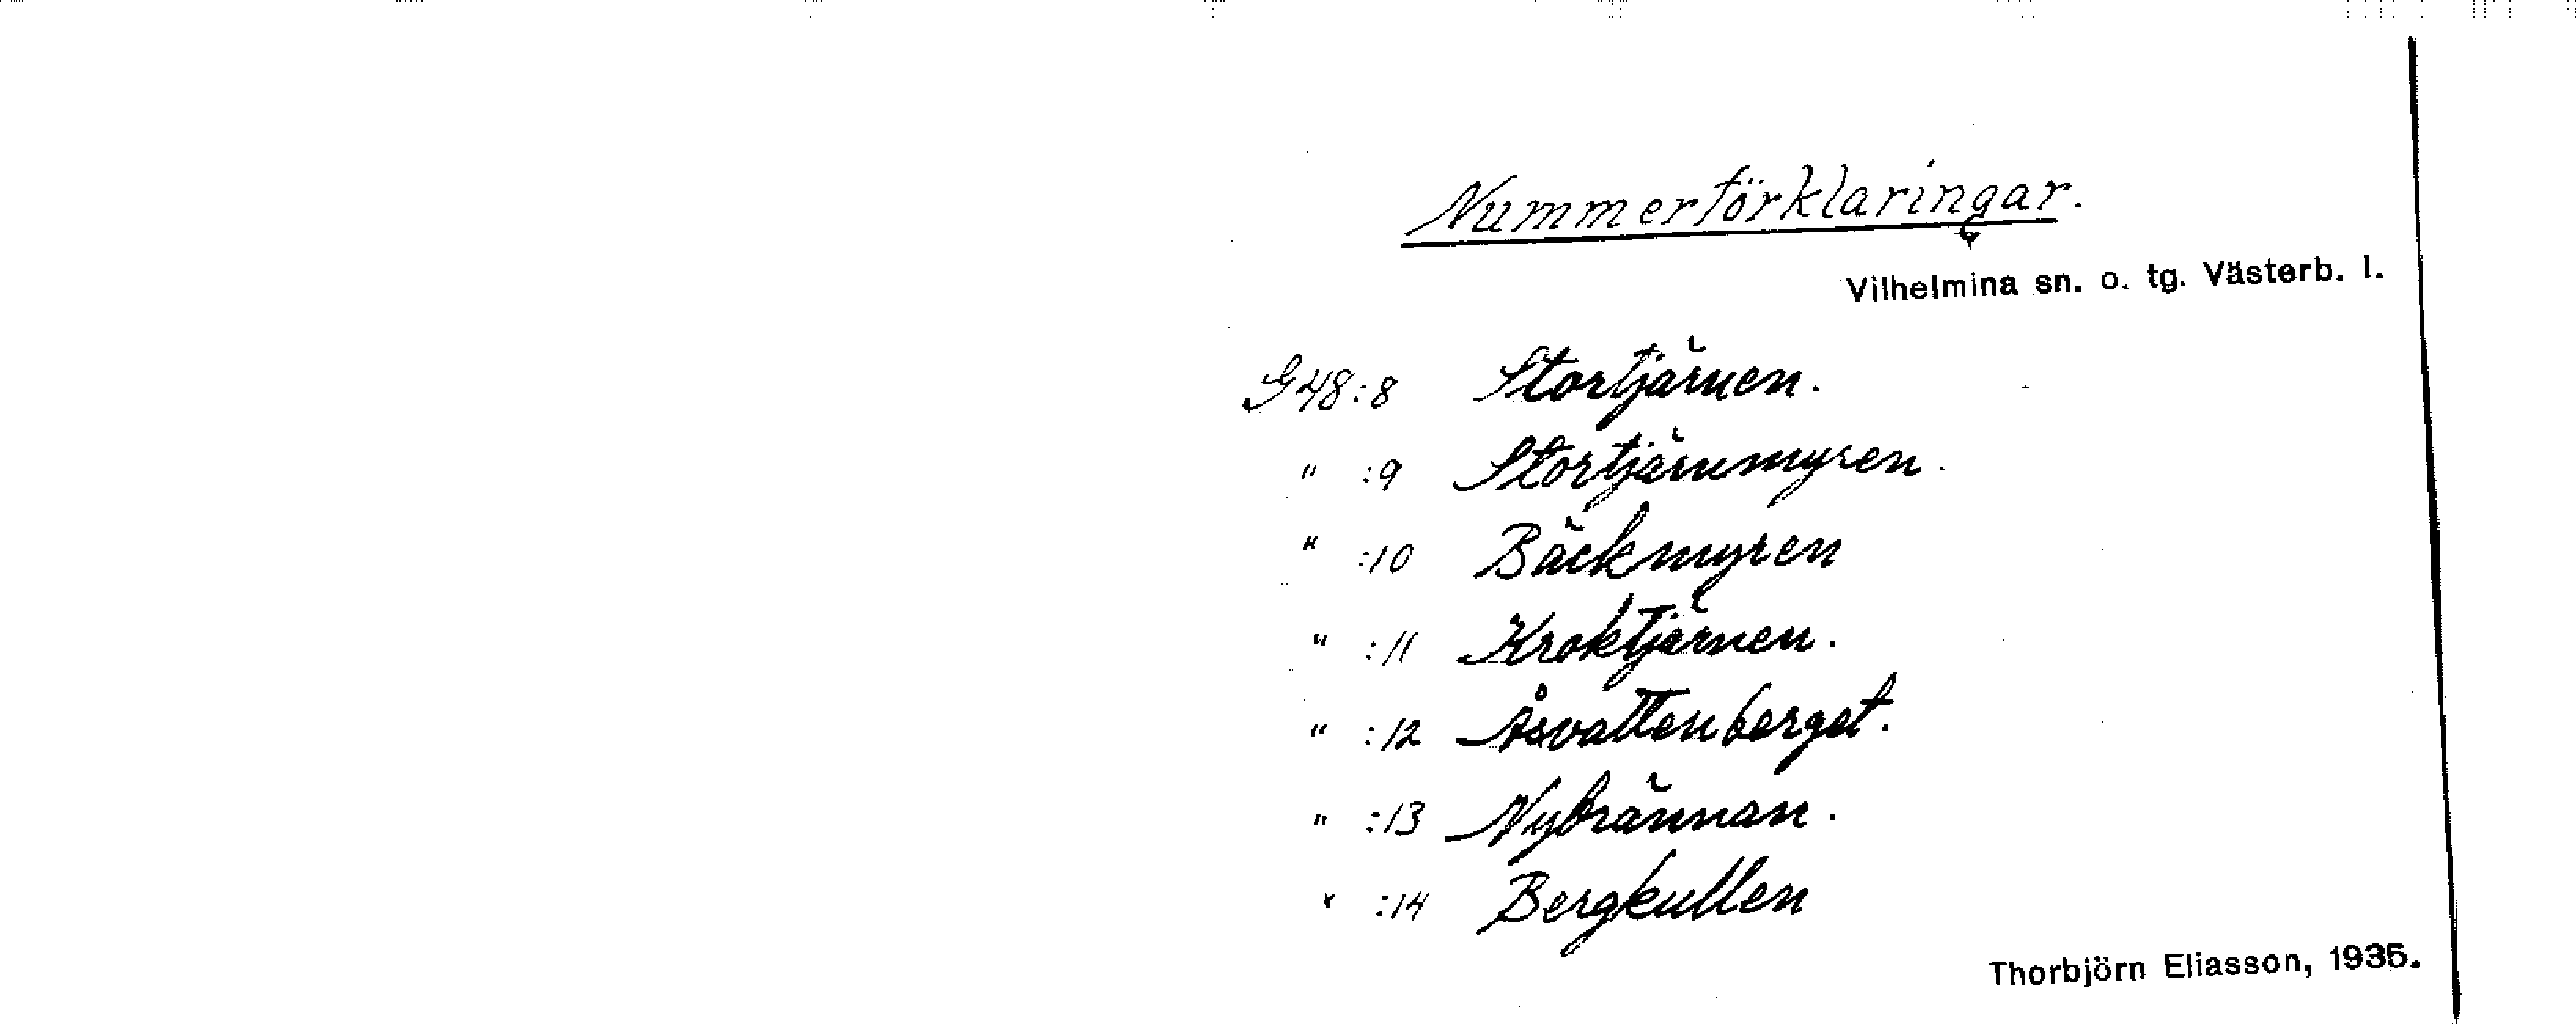 Nummerförklaringar.
Vilhelmina sn. o. tg. Västerb. l.
G48:8 Stortjärnen.
" :9 Stortjärnmyren.
" :10 Bäckmyren
" :11 Kroktjärnen.
" :12 Åsvattenberget.
" :13 Nybrännan.
" :14 Bergkullen
Thorbjörn Eliasson, 1935.